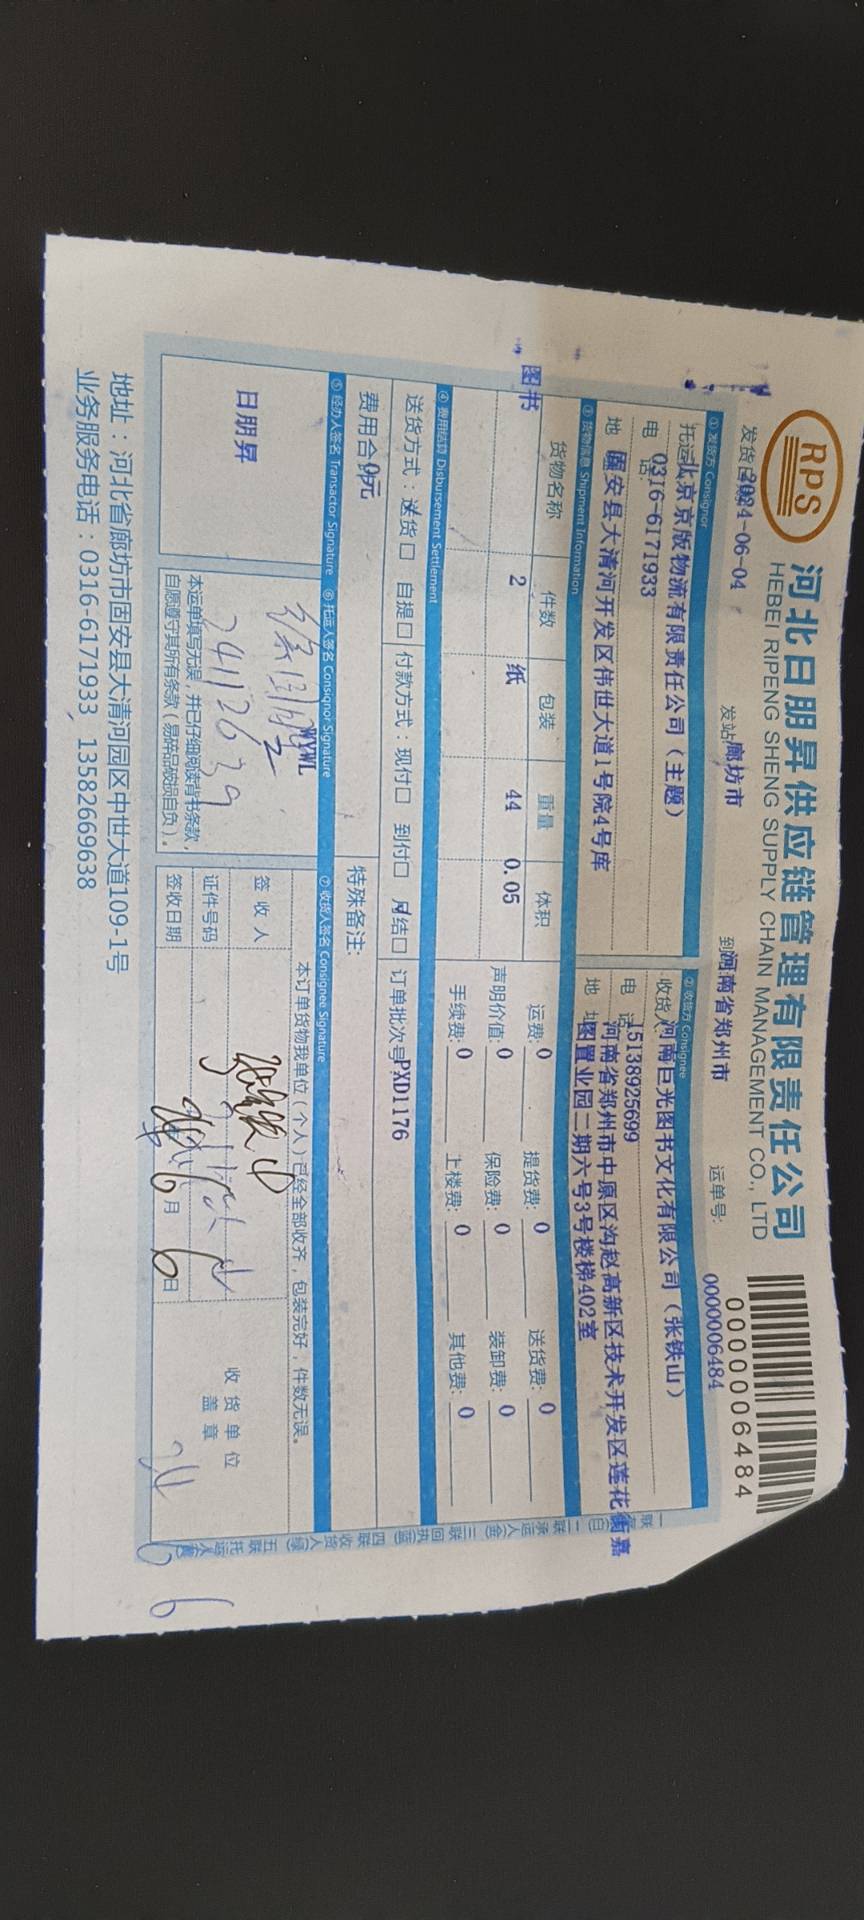 RPS
河北日朋昇供应链管理有限责任公司
HEBEI RIPENG SHENG SUPPLY CHAIN MANAGEMENT CO., LTD
0000006484
发货日期 2024-06-04 发站: 廊坊市 到 河南省郑州市 运单号: 0000006484
① 发货方 Consignor ② 收货方 Consignee
托运 北京京版物流有限责任公司(主题) 收货人: 河南巨光图书文化有限公司(张铁山)
电话: 0316-6171933 电话 15138925699
地 固安县大清河开发区伟世大道1号院4号库 地址 河南省郑州市中原区沟赵高新区技术开发区莲花街嘉
图置业园二期六号3号楼梯402室
③ 货物信息 Shipment Information
货物名称 件数 包装 重量 体积 运费: 0 提货费: 0 送货费: 0
图书 2 纸 44 0.05 声明价值: 0 保险费: 0 装卸费: 0
手续费: 0 上楼费: 0 其他费: 0
④ 费用结算 Disbursement Settlement
送货方式:送货□ 自提□ 付款方式:现付□ 到付□ 月结□ 订单批次号 PXD1176
费用合 0元 特殊备注:
⑤ 经办人签名 Transactor Signature ⑥ 托运人签名 Consignor Signature ⑦ 收货人签名 Consignee Signature
日朋昇
WYWL
24112639
本运单填写无误,并已仔细阅读背书条款,
自愿遵守其所有条款(易碎品破损自负)。
本订单货物我单位(个人)已经全部收齐,包装完好,件数无误。
签收人
证件号码
签收日期 6月 6日
收货单位
盖章
24 6 6
一联 存(白) 二联 承运人(金) 三联 回执(蓝) 四联 收货人(绿) 五联 托运人(黄)
地址:河北省廊坊市固安县大清河园区中世大道109-1号
业务服务电话:0316-6171933 13582669638